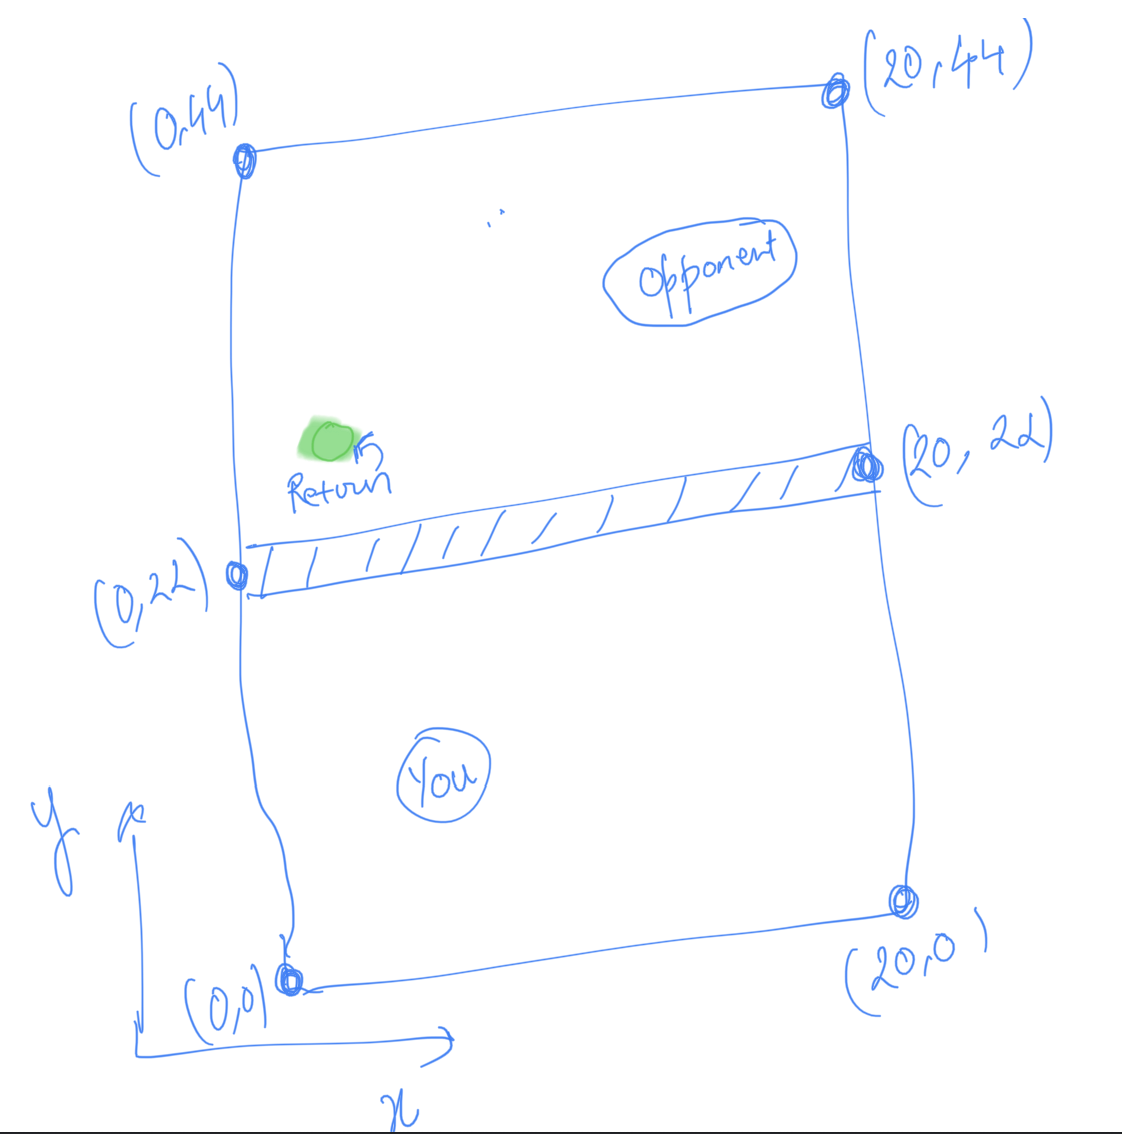 (20,44)
(0,44)
Opponent
Return
(20, 22)
(0,22)
You
y
(0,0)
(20,0)
x